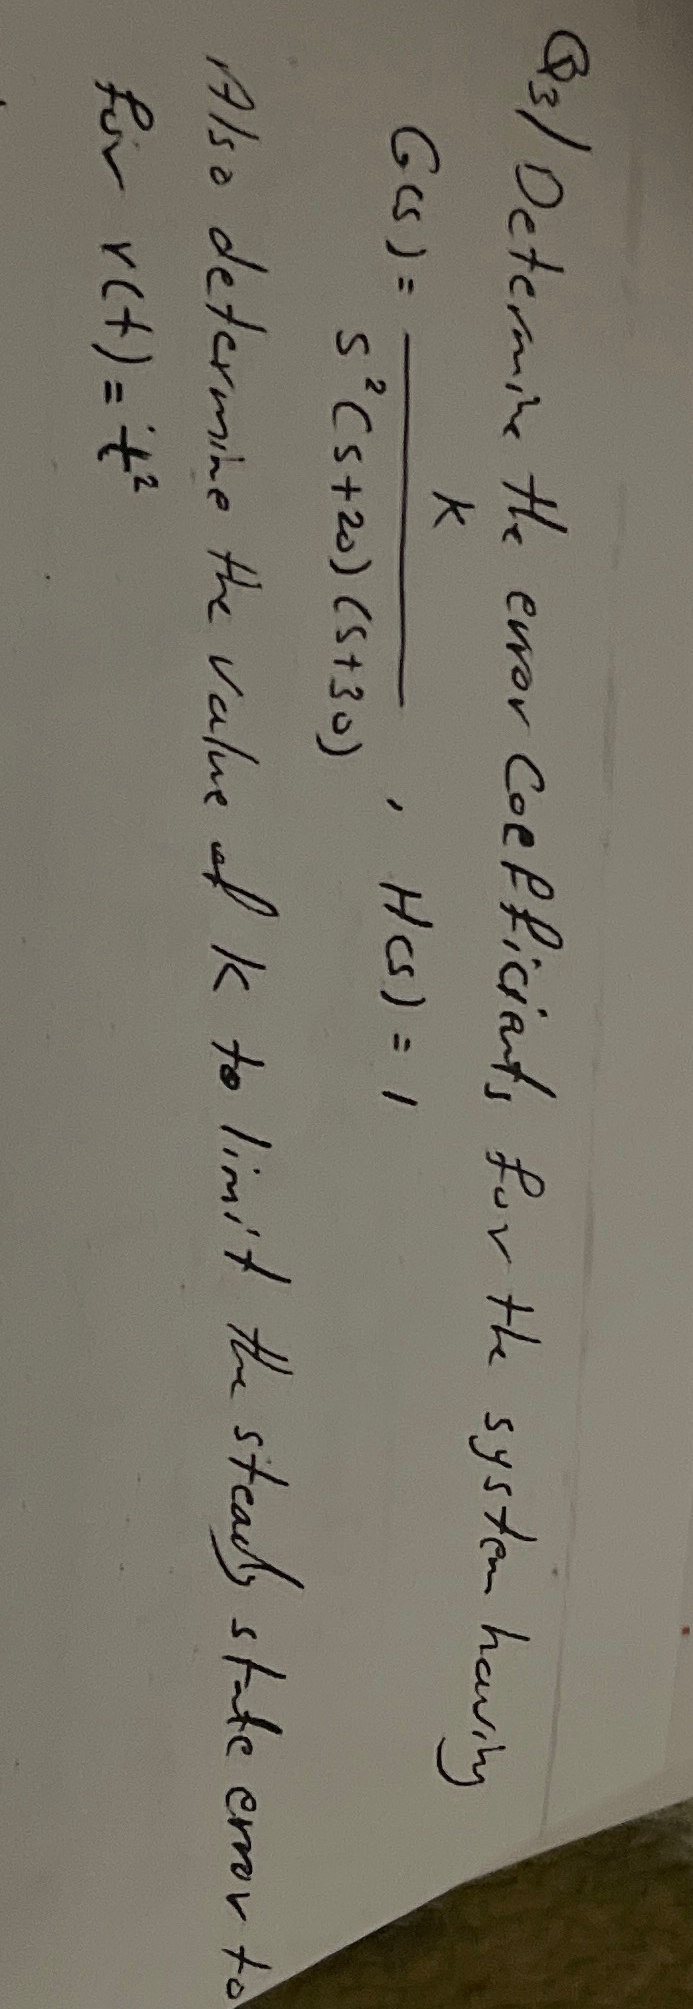 Q3/ Determine the error Coefficients for the system having
G(s) = K / s²(s+20)(s+30) , H(s) = 1
Also determine the value of K to limit the steady state error to
for r(t) = t²